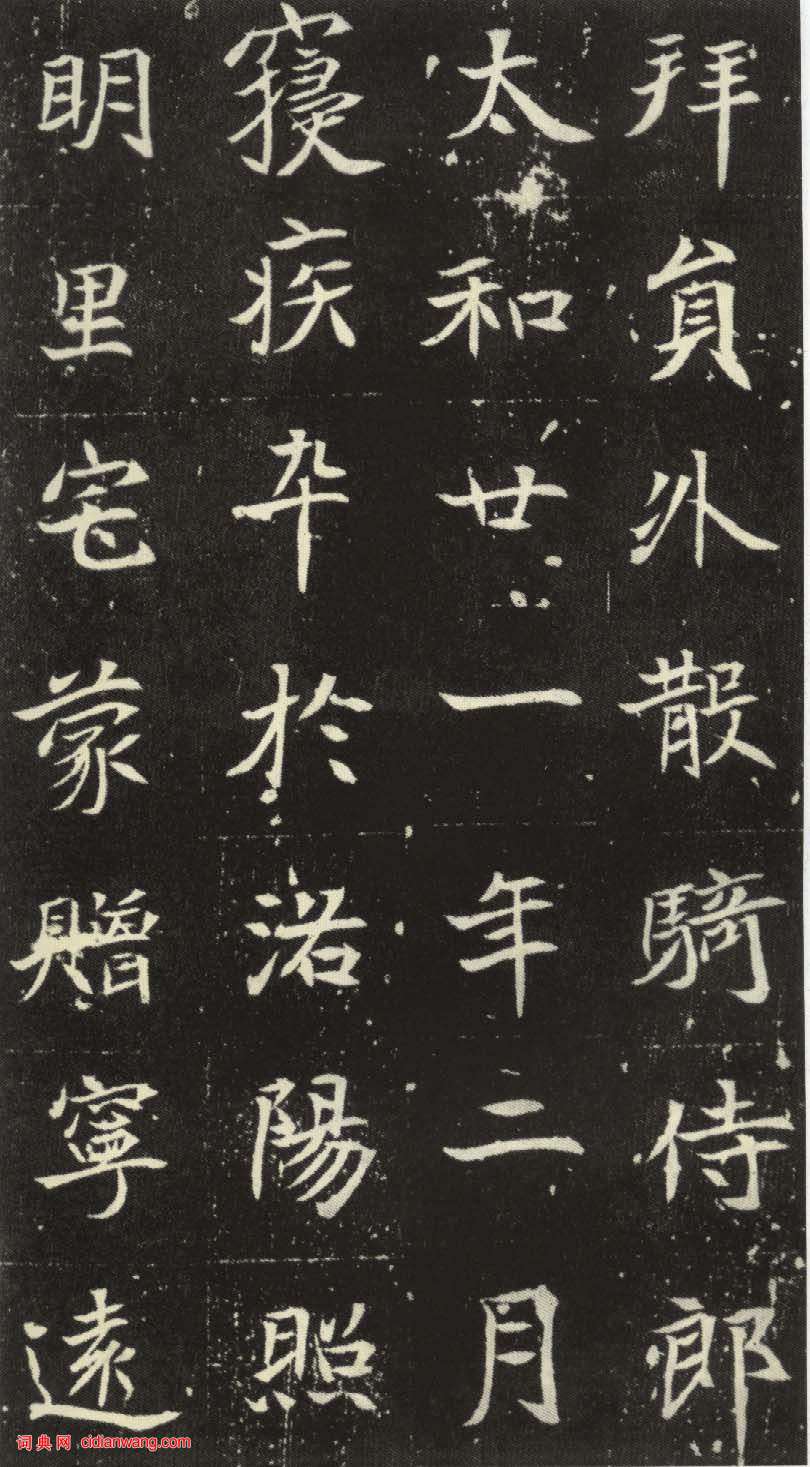 拜員外散騎侍郎
太和廿一年二月
寑疾卆於洛陽照
明里宅蒙贈寧遠
词典网：cidianwang.com